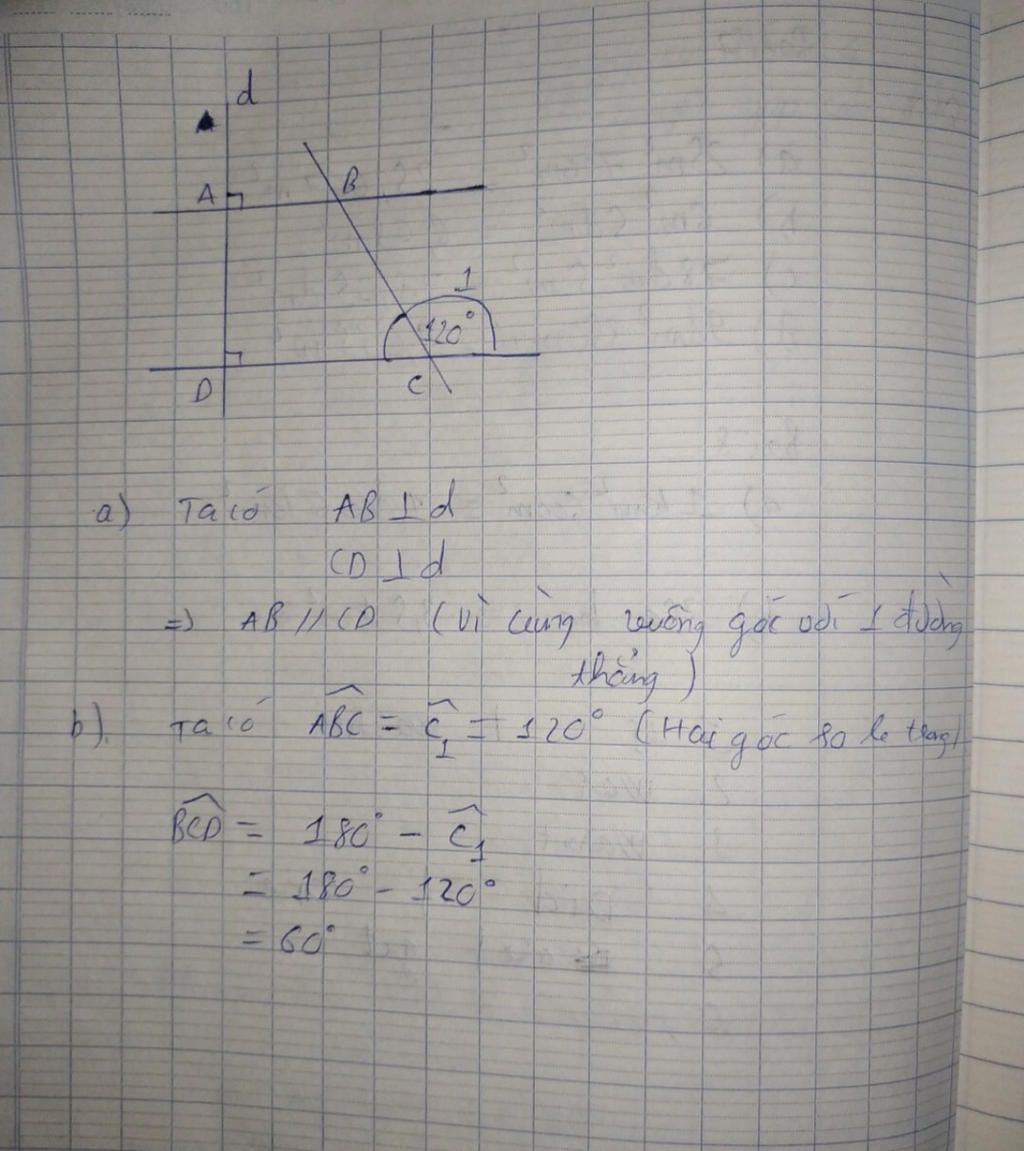 d
A
B
1
120°
D
C
a) Ta có AB ⊥ d
CD ⊥ d
=> AB // CD (Vì cùng vuông góc với 1 đường
thẳng)
b). Ta có ABC = C1 = 120° (Hai góc so le trong)
BCD = 180° - C1
= 180° - 120°
= 60°